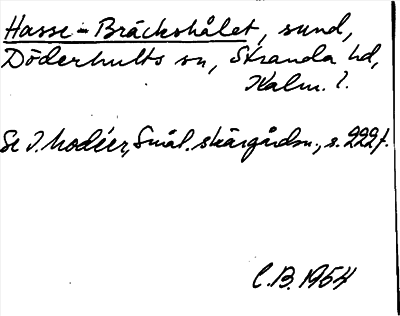 Hasse-Bräckshålet, sund,
Döderhults sn, Stranda hd,
Kalm. l.
Se I. Modéer, Smål. skärgårdsn., s. 222 f.
C.B. 1954